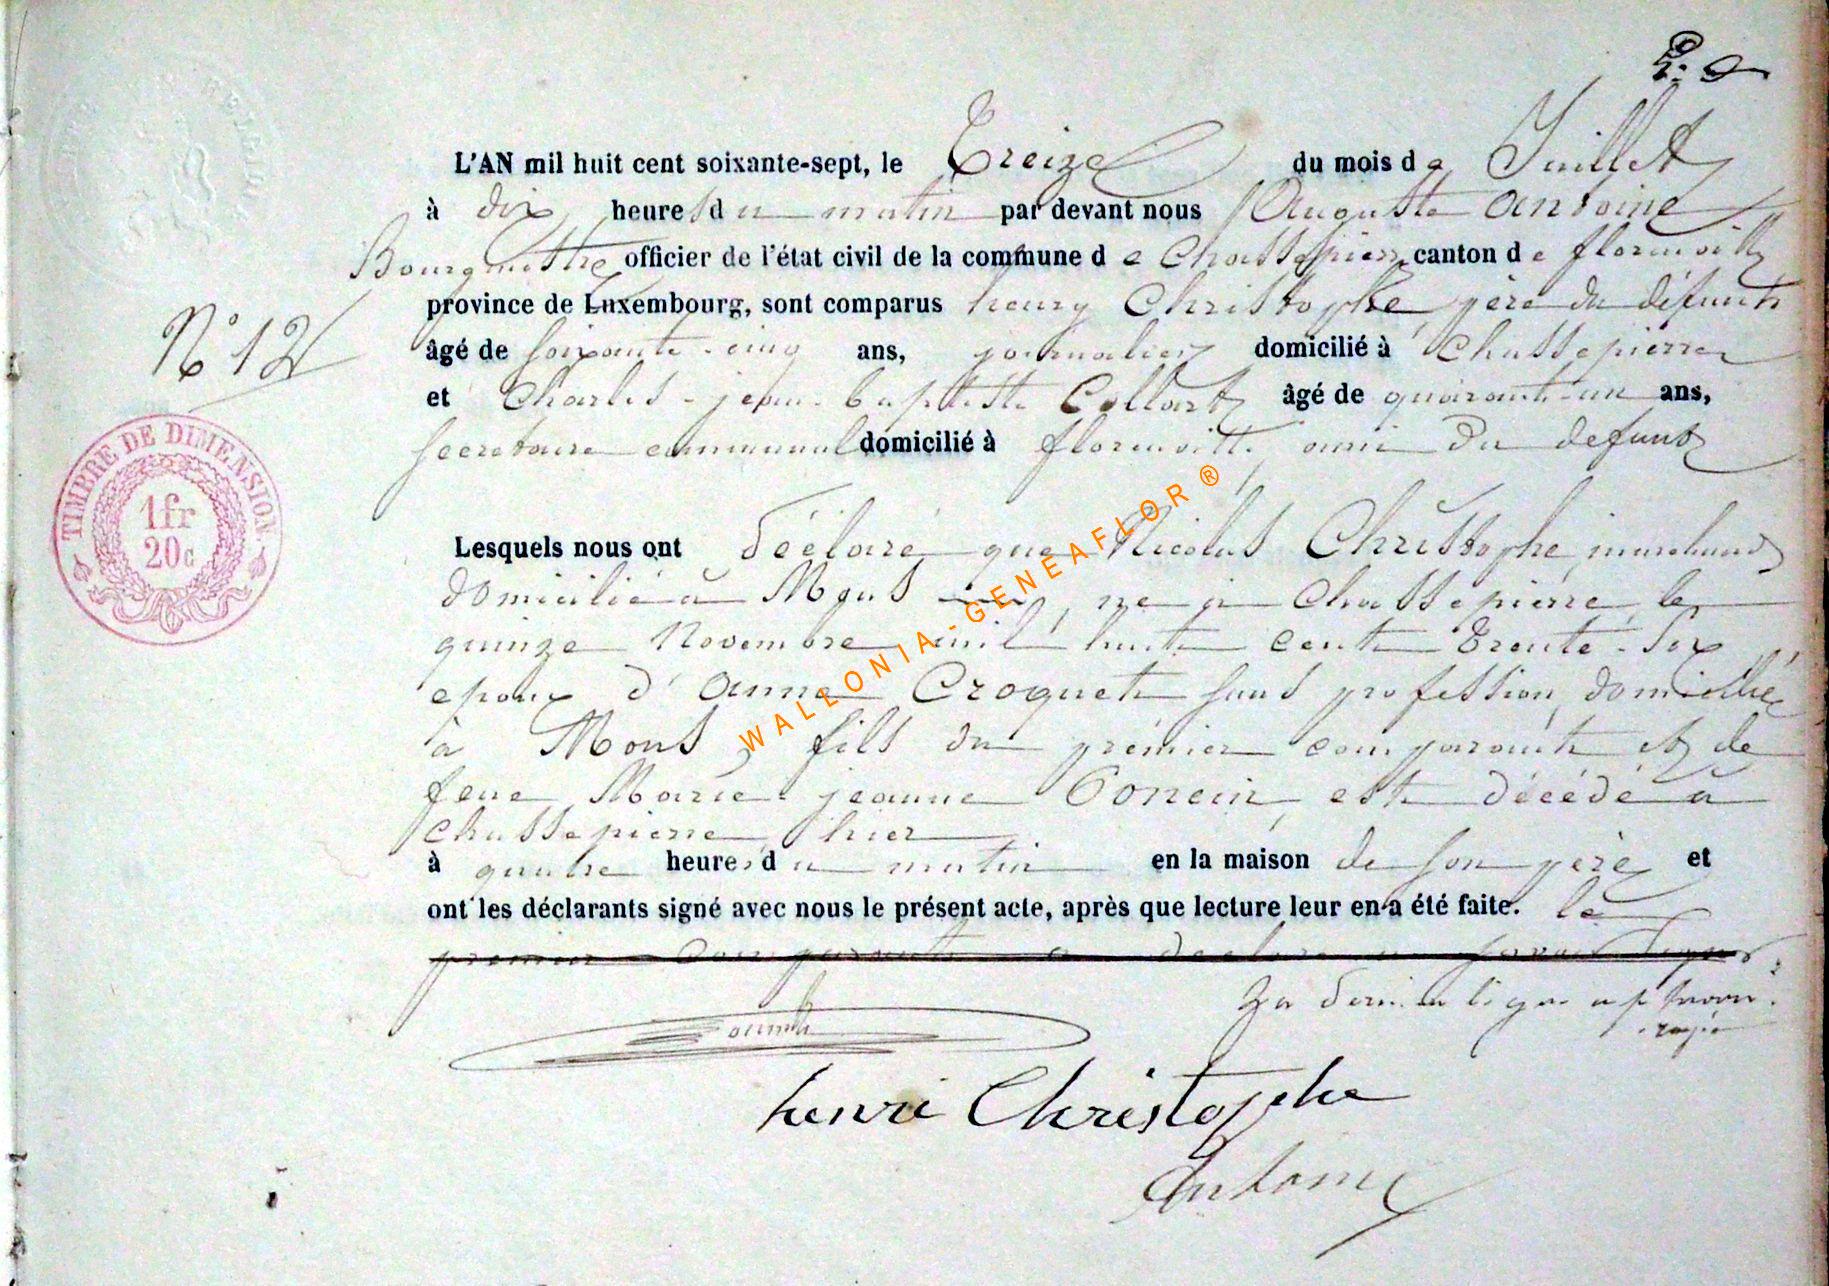 L'AN mil huit cent soixante-sept, le Treize du mois de Juillet
à dix heures du matin par devant nous Auguste Antoine
Bourgmestre officier de l'état civil de la commune de Chassepierre canton de florenville
province de Luxembourg, sont comparus henry Christophe père du défunt
N° 12
âgé de soixante-cinq ans, journalier domicilié à Chassepierre
et Charles-jean-baptiste Collart âgé de quarante-un ans,
secretaire communal domicilié à florenville, ami du defunt
TIMBRE DE DIMENSION.
1fr
20c
WALLONIA-GENEAFLOR®
Lesquels nous ont déclaré que Nicolas Christophe, marchand
domicilié à Mons, né à Chassepierre, le
quinze Novembre mil huit cent trente-six,
epoux d'anne Croquet sans profession, domiciliée
à Mons, fils du premier comparant et de
feue Marie-jeanne, est décédé à
chassepierre, hier
à quatre heures du matin en la maison de son père et
ont les déclarants signé avec nous le présent acte, après que lecture leur en a été faite. le
premier comparant a declaré
La derniere ligne
rayée
henri Christophe
Antoine